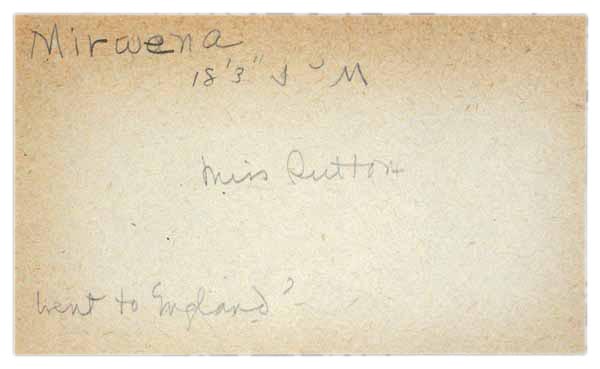 Mirwena
18'3" J M
Miss Rutton
went to England?